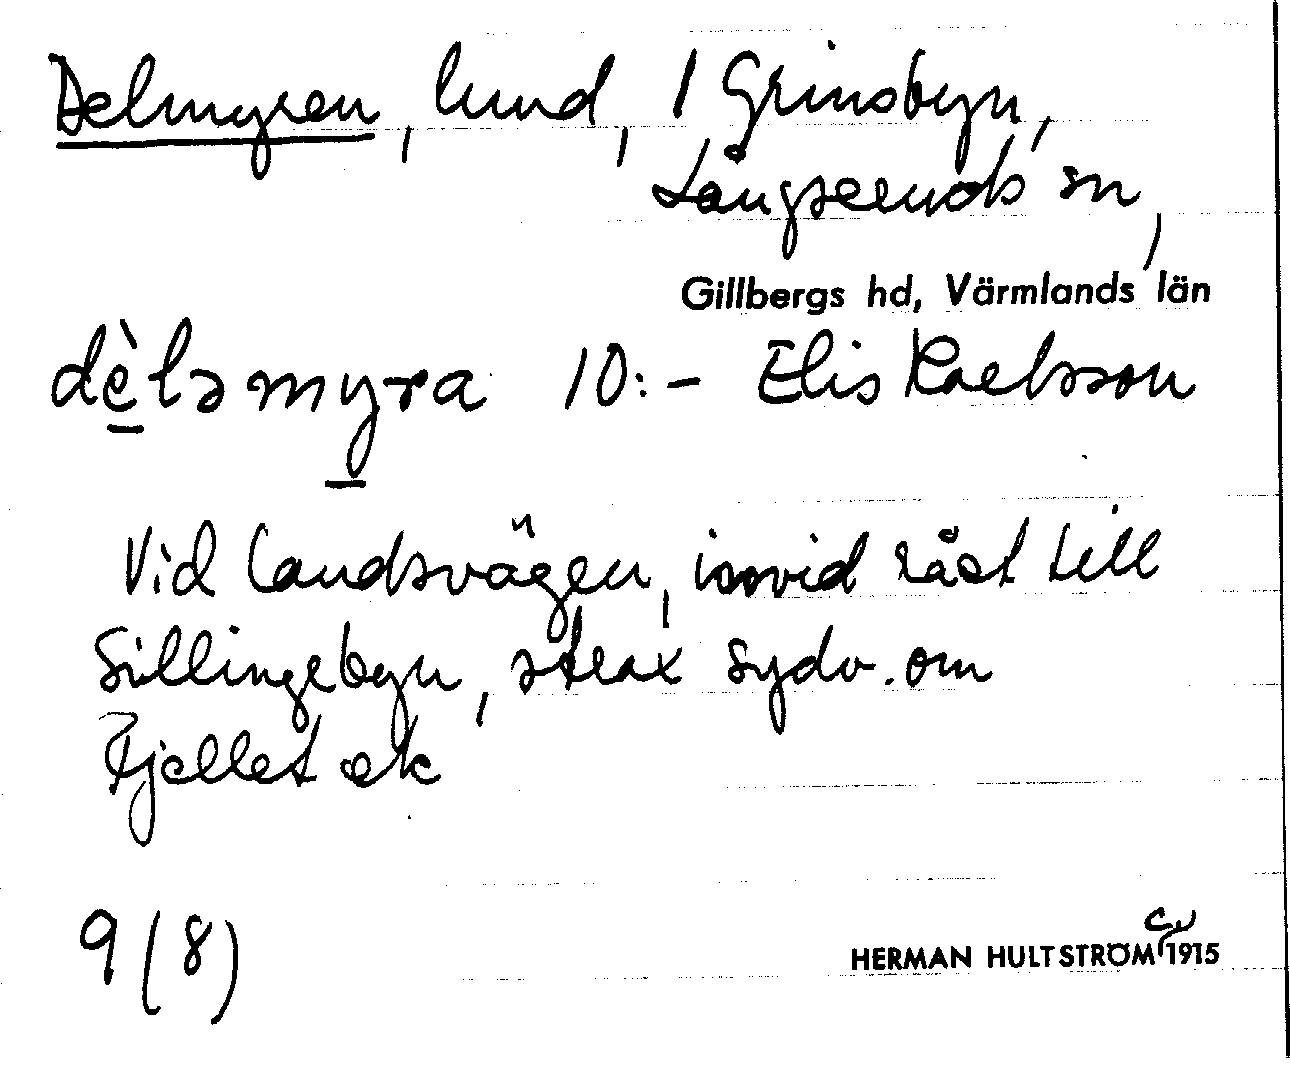 Delmyren, lund, 1 Grinsbyn,
Långseruds sn,
Gillbergs hd, Värmlands län
dèlamyra 10:- Elis Karlsson
Vid landsvägen, invid råst till
Sillingebyn, strax sydv. om
Fjellet ek
9 (8)
HERMAN HULTSTRÖM 1915